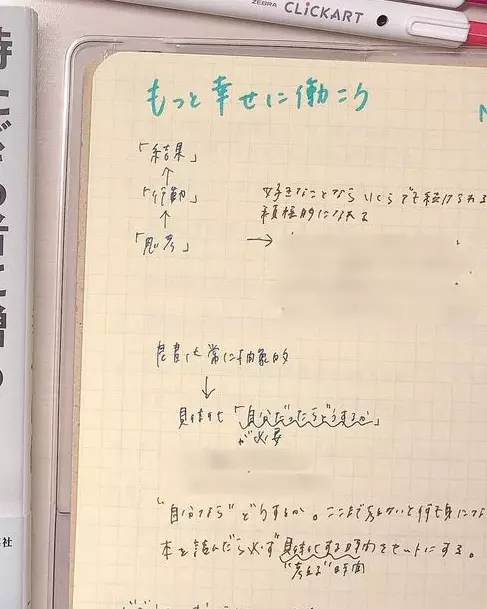 ZEBRA CLiCKART
もっと幸せに働こう
N
「結果」
↑
「行動」
↑
「思考」
→
好きなことなら いくらでも続けられる
積極的になれる
は常に抽象的
↓
具体化「自分だったらどうするか」
が必要
"自分なら"どうするか。ここまで考えないと何も身につ
本を読んだら必ず具体化する時間をセットにする。
"考える"時間